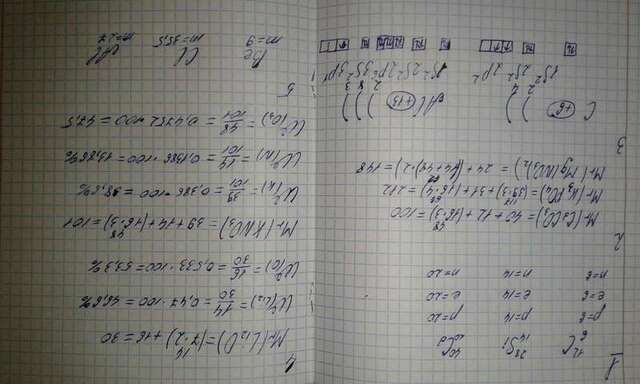 1
12 6 C 28 14 Si 40 20 Cd
p=6 p=14 p=20
e=6 e=14 e=20
n=6 n=14 n=20
2
Mr(CaCO3) = 40+12+(16·3)48=100
Mr(K3PO4)=(39·3)117+31+(16·4)64=212
Mr(Mg(NO3)2) = 24+((14+48)·2)=148
3
C +6 ) ) Al +13 ) ) )
2 4 2 8 3
1S² 2S² 2P² 1S² 2S² 2P⁶ 3S² 3P¹
4
Mr(Li2O)=(7·2)14+16=30
W(Li2)=14/30=0,47·100=46,6%
W(O)=16/30=0,533·100=53,3%
Mr(KNO3)=39+14+(16·3)48=101
W(K)=39/101=0,386·100=38,6%
W(N)=14/101=0,1386·100=13,86%
W(O3)=48/101=0,4752·100=47,5
5
Be Cl Al
m=9 m=35,5 m=27